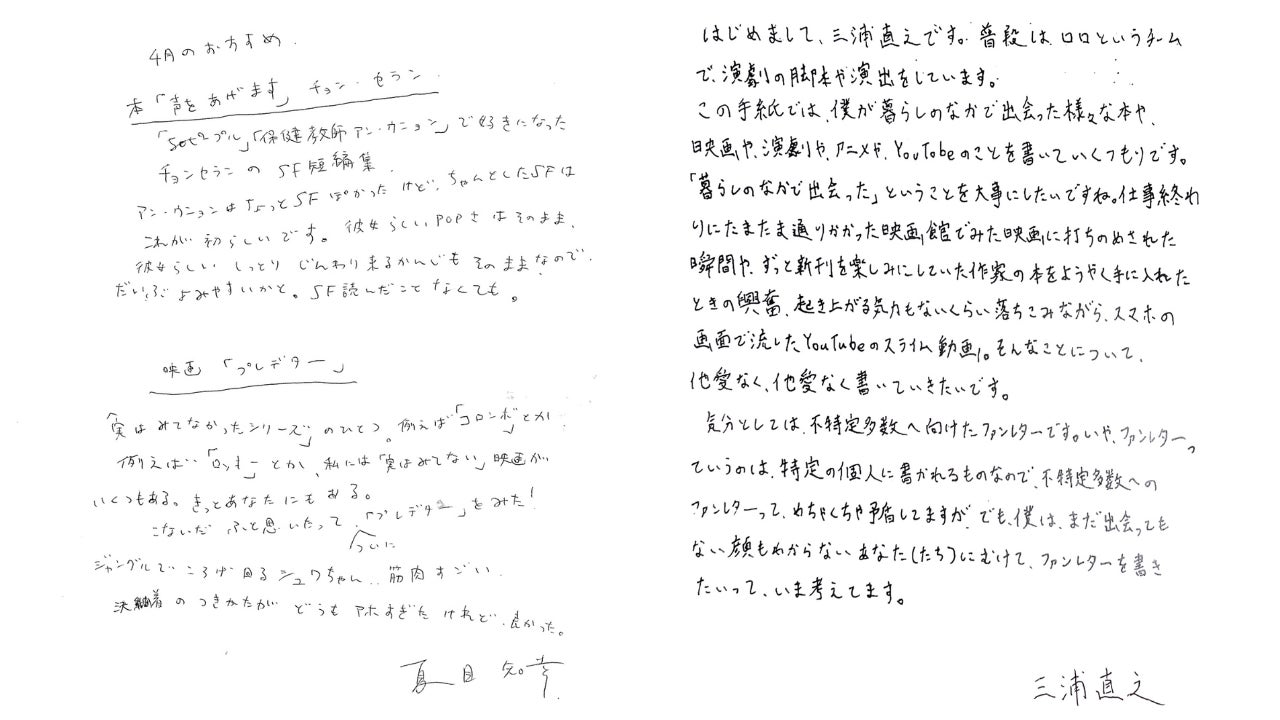 4月のおすすめ.
本「声をあげます」チョン・セラン
「50ピープル」「保健教師アン・ウニョン」で好きになった
チョンセランのSF短編集.
アン・ウニョンはちょっとSFぽかったけど、ちゃんとしたSFは
これが初らしいです。彼女らしいPOPさはそのまま、
彼女らしいしっとりじんわり来るかんじもそのままなので、
だいぶよみやすいかと。SF読んだことなくても。
映画「プレデター」
「実はみてなかったシリーズ」のひとつ。例えば「コロンボ」とか
例えば「ロッキー」とか、私には「実はみてない」映画が
いくつもある。きっとあなたにもある。
こないだふと思いたって、「プレデター」をみた!
ついに
ジャングルでころげ回るシュワちゃん..筋肉すごい.
決着のつきかたがどうもアホすぎたけれど、良かった。
夏目知幸
はじめまして、三浦直之です。普段はロロというチーム
で、演劇の脚本や演出をしています。
この手紙では、僕が暮らしのなかで出会った様々な本や、
映画や、演劇や、アニメや、YouTubeのことを書いていくつもりです。
「暮らしのなかで出会った」ということを大事にしたいですね。仕事終わ
りにたまたま通りかかった映画館でみた映画に打ちのめされた
瞬間や、ずっと新刊を楽しみにしていた作家の本をようやく手に入れた
ときの興奮、起き上がる気力もないくらい落ちこみながら、スマホの
画面で流したYouTubeのスライム動画。そんなことについて、
他愛なく、他愛なく書いていきたいです。
気分としては、不特定多数へ向けたファンレターです。いや、ファンレターっ
ていうのは、特定の個人に書かれるものなので、不特定多数への
ファンレターって、めちゃくちゃ矛盾してますが、でも、僕は、まだ出会っても
ない顔もわからないあなた(たち)にむけて、ファンレターを書き
たいって、いま考えてます。
三浦直之